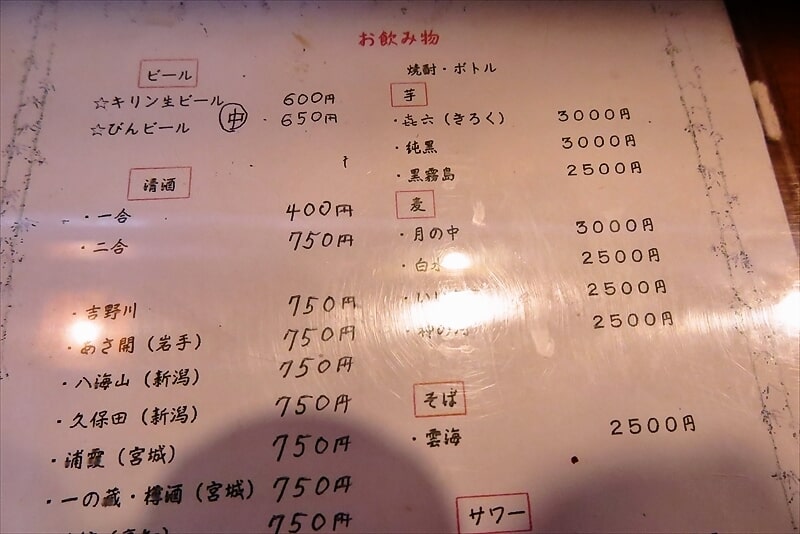 お飲み物
ビール
☆キリン生ビール 600円
☆びんビール 中 650円
清酒
・一合 400円
・二合 750円
・吉野川 750円
・あさ開(岩手) 750円
・八海山(新潟) 750円
・久保田(新潟) 750円
・浦霞(宮城) 750円
・一の蔵・樽酒(宮城) 750円
750円
焼酎・ボトル
芋
・㐂六(きろく) 3000円
・純黒 3000円
・黒霧島 2500円
麦
・月の中 3000円
・白 2500円
2500円
2500円
そば
・雲海 2500円
サワー